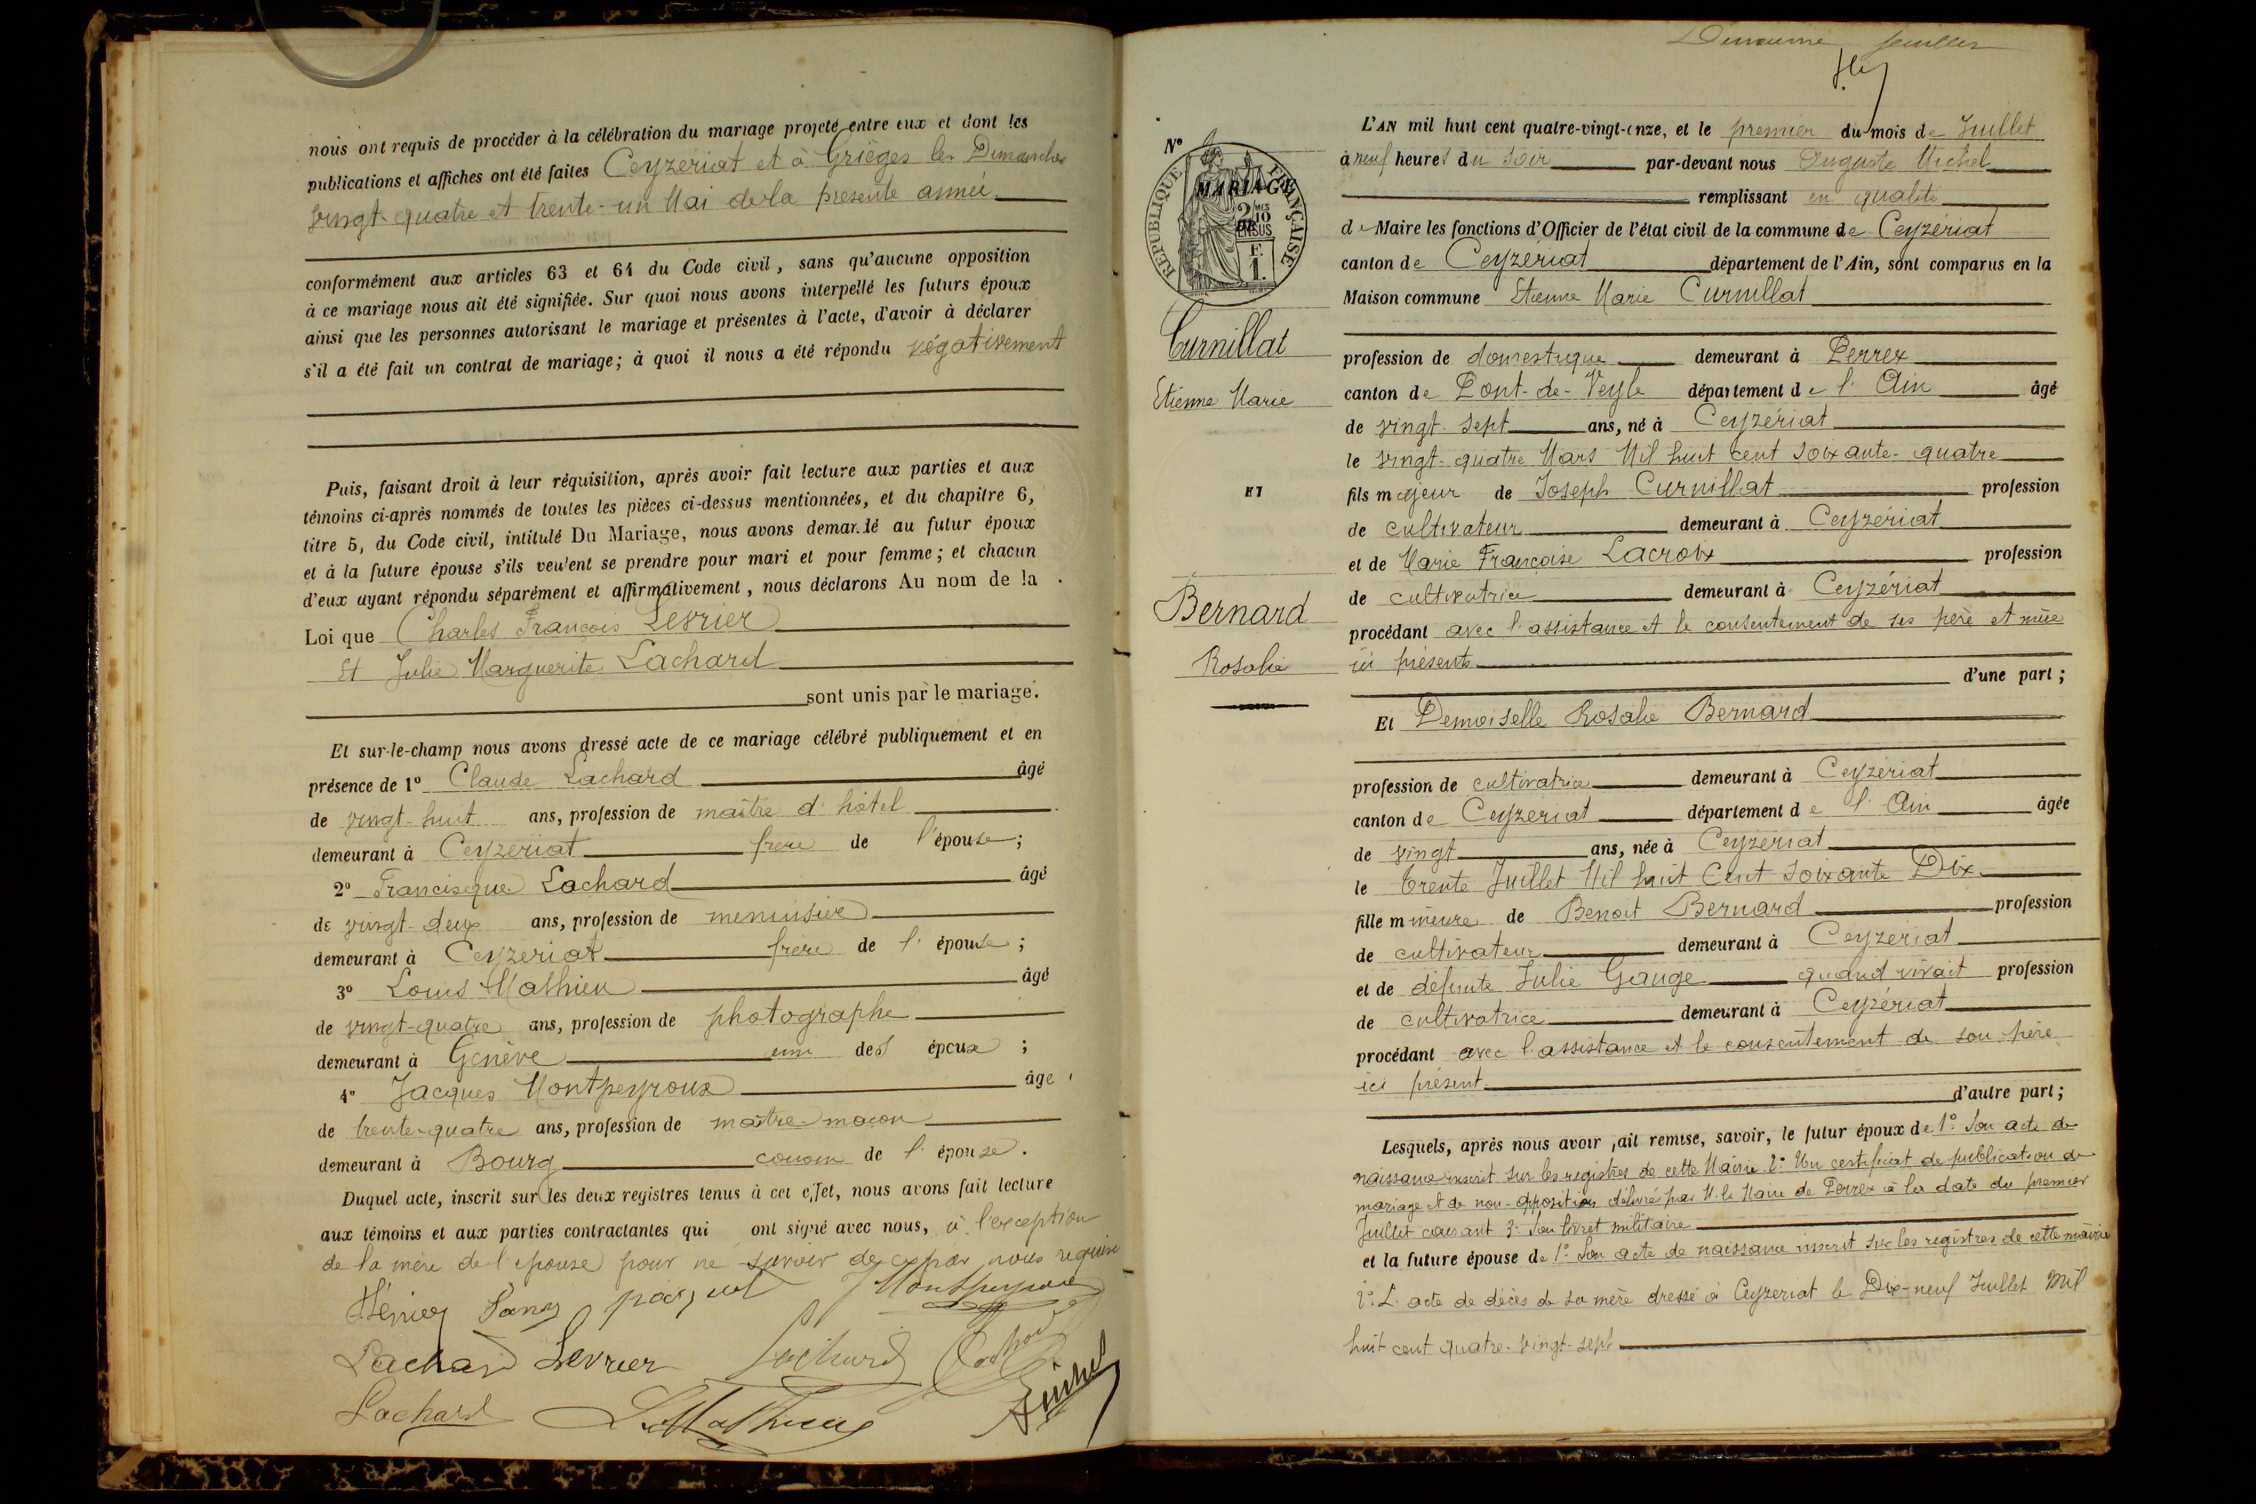 nous ont requis de procéder à la célébration du mariage projeté entre eux et dont les
publications et affiches ont été faites Ceyzeriat et à Grièges les Dimanches
vingt-quatre et trente-un Mai de la présente année
conformément aux articles 63 et 64 du Code civil, sans qu'aucune opposition
à ce mariage nous ait été signifiée. Sur quoi nous avons interpellé les futurs époux
ainsi que les personnes autorisant le mariage et présentes à l'acte, d'avoir à déclarer
s'il a été fait un contrat de mariage; à quoi il nous a été répondu négativement
Puis, faisant droit à leur réquisition, après avoir fait lecture aux parties et aux
témoins ci-après nommés de toutes les pièces ci-dessus mentionnées, et du chapitre 6,
titre 5, du Code civil, intitulé Du Mariage, nous avons demandé au futur époux
et à la future épouse s'ils veulent se prendre pour mari et pour femme; et chacun
d'eux ayant répondu séparément et affirmativement, nous déclarons Au nom de la
Loi que Charles François Levrier
Et Julie Marguerite Lachard
sont unis par le mariage.
Et sur-le-champ nous avons dressé acte de ce mariage célébré publiquement et en
présence de 1° Claude Lachard âgé
de vingt-huit ans, profession de maître d'hôtel
demeurant à Ceyzeriat frère de l'épouse;
2° Francisque Lachard âgé
de vingt-deux ans, profession de menuisier
demeurant à Ceyzeriat frère de l'épouse;
3° Louis Mathieu âgé
de vingt-quatre ans, profession de photographe
demeurant à Genève ami des époux;
4° Jacques Montpeyroux âgé
de trente-quatre ans, profession de maître-maçon
demeurant à Bourg cousin de l'épouse.
Duquel acte, inscrit sur les deux registres tenus à cet effet, nous avons fait lecture
aux témoins et aux parties contractantes qui ont signé avec nous, à l'exception
de la mère de l'épouse pour ne savoir de ce par nous requise
Montpeyroux
Lachard Levrier Lachard
Lachard L. Mathieu Michel
feuillet
N°
RÉPUBLIQUE FRANÇAISE
MARIAGE
DE
Curnillat
Etienne Marie
ET
Bernard
Rosalie
L'AN mil huit cent quatre-vingt-onze, et le premier du mois de Juillet
à neuf heures du soir par-devant nous Auguste Michel
remplissant en qualité
de Maire les fonctions d'Officier de l'état civil de la commune de Ceyzériat
canton de Ceyzériat département de l'Ain, sont comparus en la
Maison commune Etienne Marie Curnillat
profession de domestique demeurant à Perrex
canton de Pont-de-Veyle département de l'Ain âgé
de vingt-sept ans, né à Ceyzériat
le vingt-quatre Mars Mil huit cent soixante-quatre
fils majeur de Joseph Curnillat profession
de cultivateur demeurant à Ceyzériat
et de Marie Françoise Lacroix profession
de cultivatrice demeurant à Ceyzériat
procédant avec l'assistance et le consentement de ses père et mère
ici présents
d'une part;
Et Demoiselle Rosalie Bernard
profession de cultivatrice demeurant à Ceyzériat
canton de Ceyzeriat département de l'Ain âgée
de vingt ans, née à Ceyzériat
le trente Juillet Mil huit Cent Soixante Dix
fille mineure de Benoit Bernard profession
de cultivateur demeurant à Ceyzériat
et de défunte Julie Gauge quand vivait profession
de cultivatrice demeurant à Ceyzériat
procédant avec l'assistance et le consentement de son père
ici présent
d'autre part;
Lesquels, après nous avoir fait remise, savoir, le futur époux de 1° Son acte de
naissance inscrit sur les registres de cette Mairie 2° Un certificat de publication de
mariage et de non-opposition délivré par M. le Maire de Perrex à la date du premier
Juillet courant 3° Son livret militaire
et la future épouse de 1° Son acte de naissance inscrit sur les registres de cette mairie
2° L'acte de décès de sa mère dressé à Ceyzeriat le Dix-neuf Juillet Mil
huit cent quatre-vingt-sept